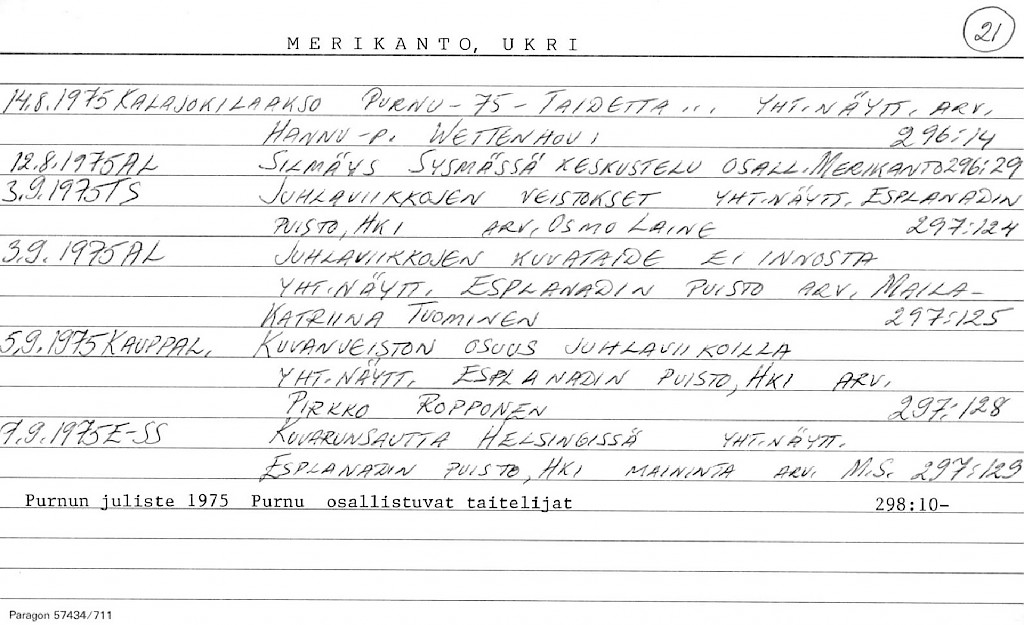 21
MERIKANTO, UKRI
14.8.1975 KALAJOKILAAKSO PURNU-75-TAIDETTA... YHT.NÄYTT. ARV.
HANNU-P. WETTENHOVI 296:14
12.8.1975 AL SILMÄYS SYSMÄSSÄ KESKUSTELU OSALL. MERIKANTO 296:29
3.9.1975 TS JUHLAVIIKKOJEN VEISTOKSET YHT.NÄYTT. ESPLANADIN
PUISTO, HKI ARV. OSMO LAINE 297:124
3.9.1975 AL JUHLAVIIKKOJEN KUVATAIDE EI INNOSTA
YHT.NÄYTT. ESPLANADIN PUISTO ARV. MAILA-
KATRIINA TUOMINEN 297:125
5.9.1975 KAUPPAL. KUVANVEISTON OSUUS JUHLAVIIKOILLA
YHT.NÄYTT. ESPLANADIN PUISTO, HKI ARV.
PIRKKO ROPPONEN 297:128
7.9.1975 E-SS KUVARUNSAUTTA HELSINGISSÄ YHT.NÄYTT.
ESPLANADIN PUISTO, HKI MAININTA ARV. M.S. 297:129
Purnun juliste 1975 Purnu osallistuvat taitelijat 298:10-
Paragon 57434/711